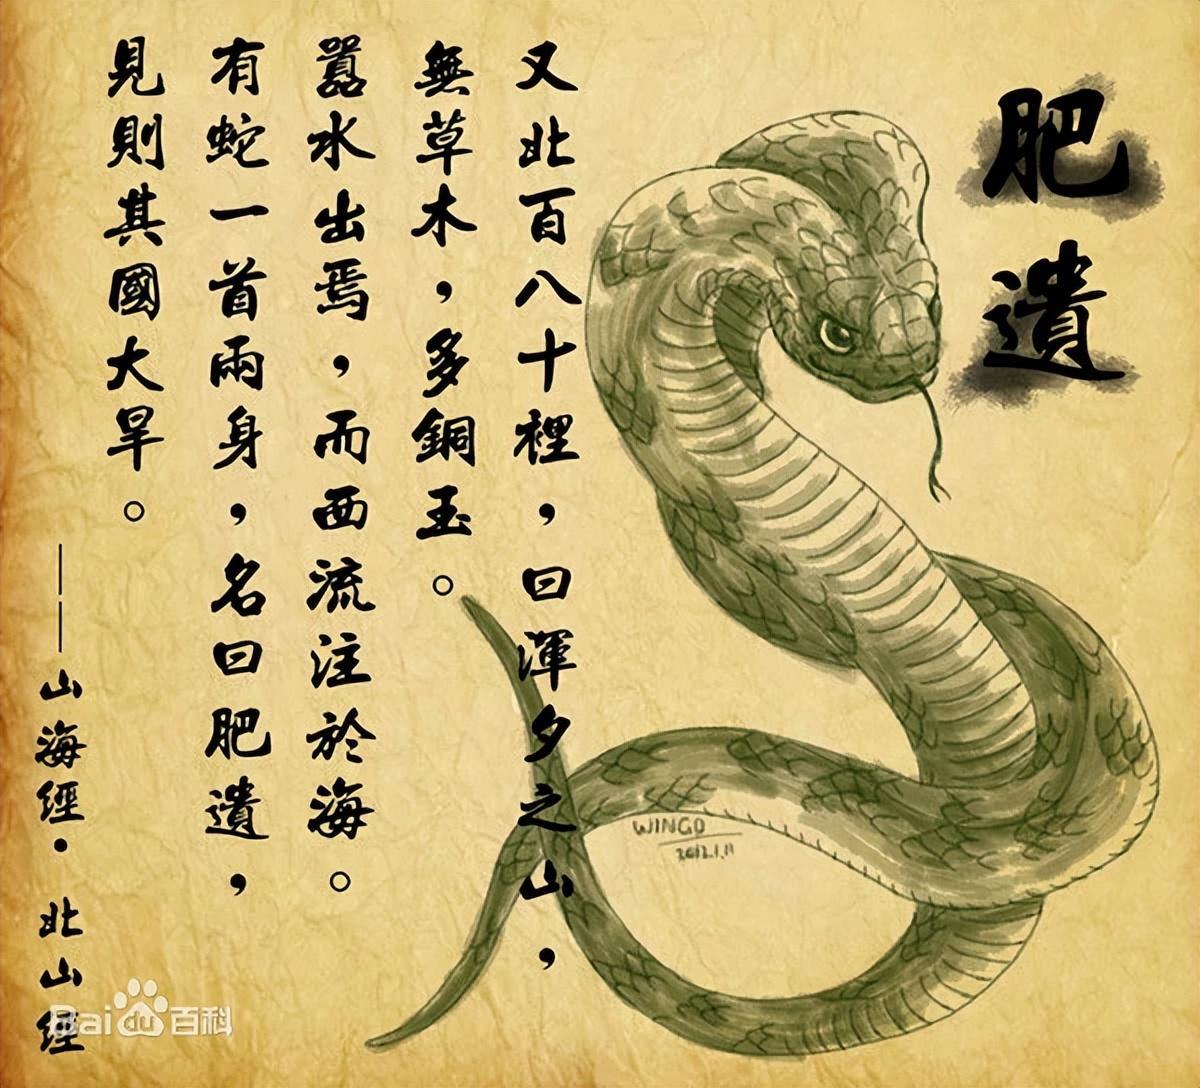 肥遺
又北百八十裡，曰渾夕之山，
無草木，多銅玉。
嚣水出焉，而西流注於海。
有蛇一首兩身，名曰肥遺，
見則其國大旱。
——山海經·北山經
WINGO
2012.1.11
Baidu百科